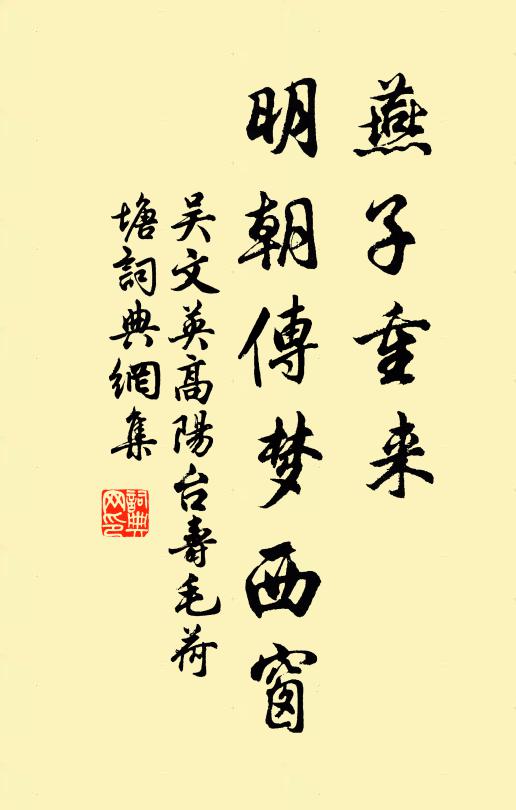 燕子重来
明朝傳梦西窗
吴文英高陽台壽毛荷
塘詞典網集
詞典网印